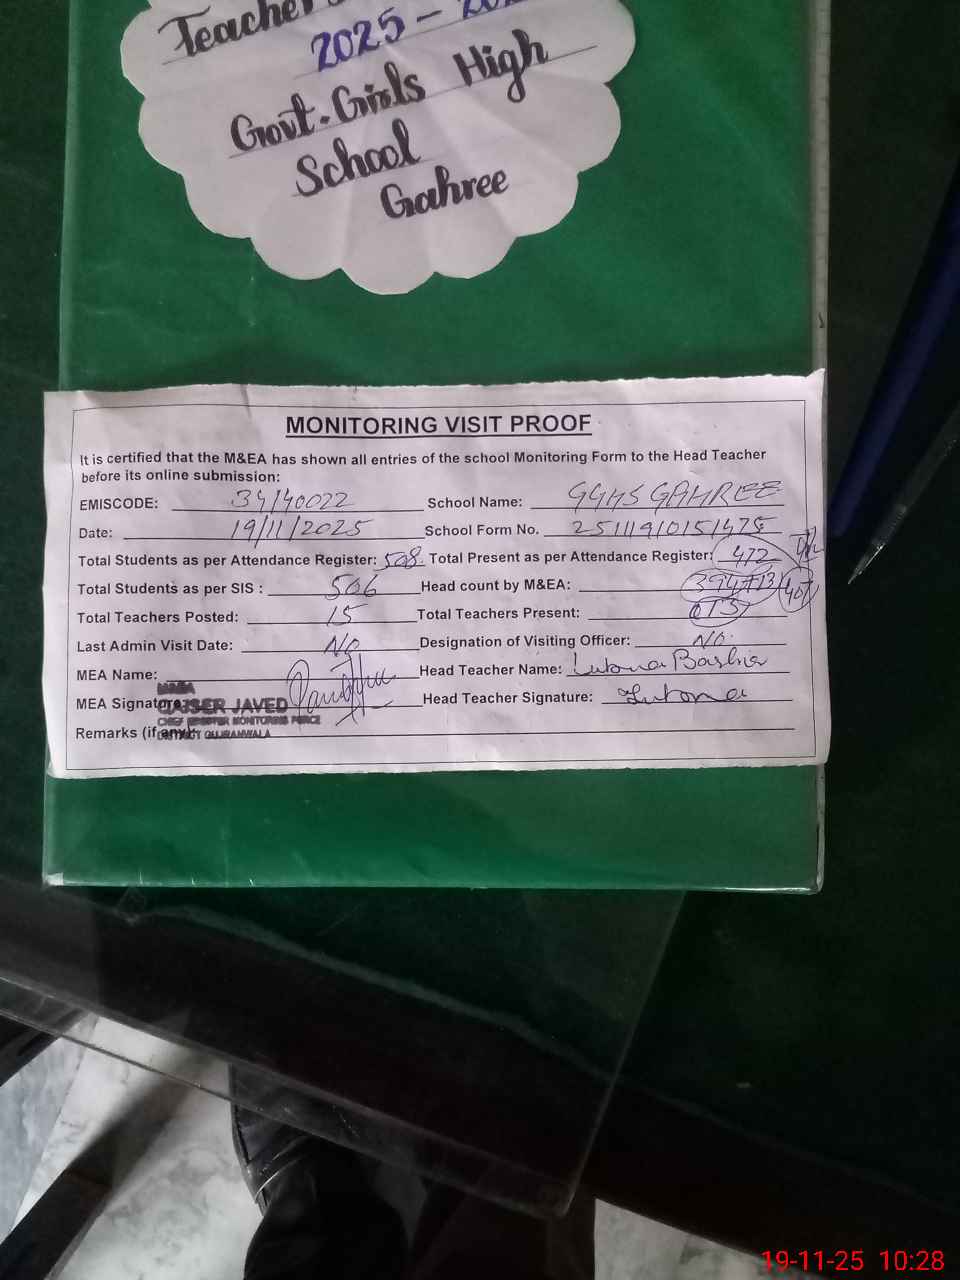 Teacher
2025 - 202
Govt. Girls High
School
Gahree
MONITORING VISIT PROOF
It is certified that the M&EA has shown all entries of the school Monitoring Form to the Head Teacher
before its online submission:
EMISCODE: 34140022 School Name: GGHS GAHREE
Date: 19/11/2025 School Form No.
Total Students as per Attendance Register: 508 Total Present as per Attendance Register: 472
Total Students as per SIS : 506 Head count by M&EA: 394+13 407
Total Teachers Posted: 15 Total Teachers Present:
Last Admin Visit Date: No Designation of Visiting Officer: No.
MEA Name: Head Teacher Name: Lubna Bashir
MEA Signature: Head Teacher Signature: Lubna
QAISER JAVED
CHIEF MINISTER MONITORING FORCE
Remarks (if any):
DISTRICT GUJRANWALA
19-11-25 10:28